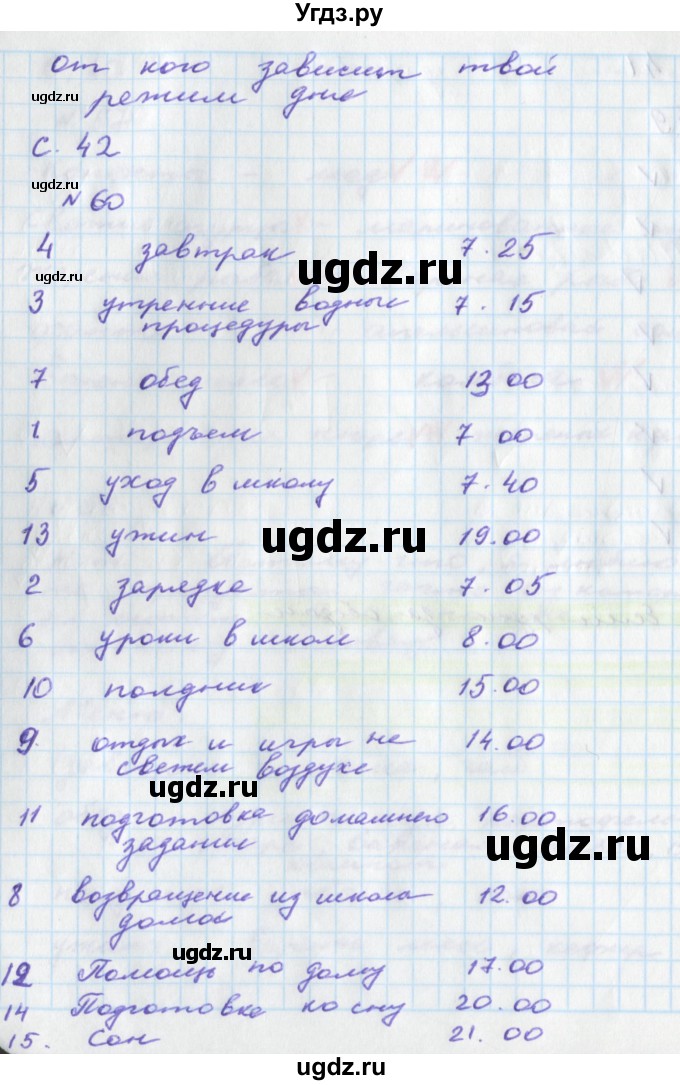 Угдз.ру
от кого зависит твой
ugdz.ru режим дня
с. 42
ugdz.ru
№ 60
4 завтрак 7.25
ugdz.ru ugdz.ru
3 утренние водные 7.15
процедуры
7 обед 13 00
1 подъем 7 00
5 уход в школу 7.40
13 ужин 19.00
ugdz.ru
2 зарядка 7.05
6 уроки в школе 8.00
10 полдник 15.00
9. отдых и игры на 14.00
свежем воздухе
ugdz.ru
11 подготовка домашнего 16.00
задания ugdz.ru
8 возвращение из школа 12.00
домой
ugdz.ru
12 Помощь по дому 17.00
14 Подготовка ко сну 20.00
15. Сон 21.00
ugdz.ru